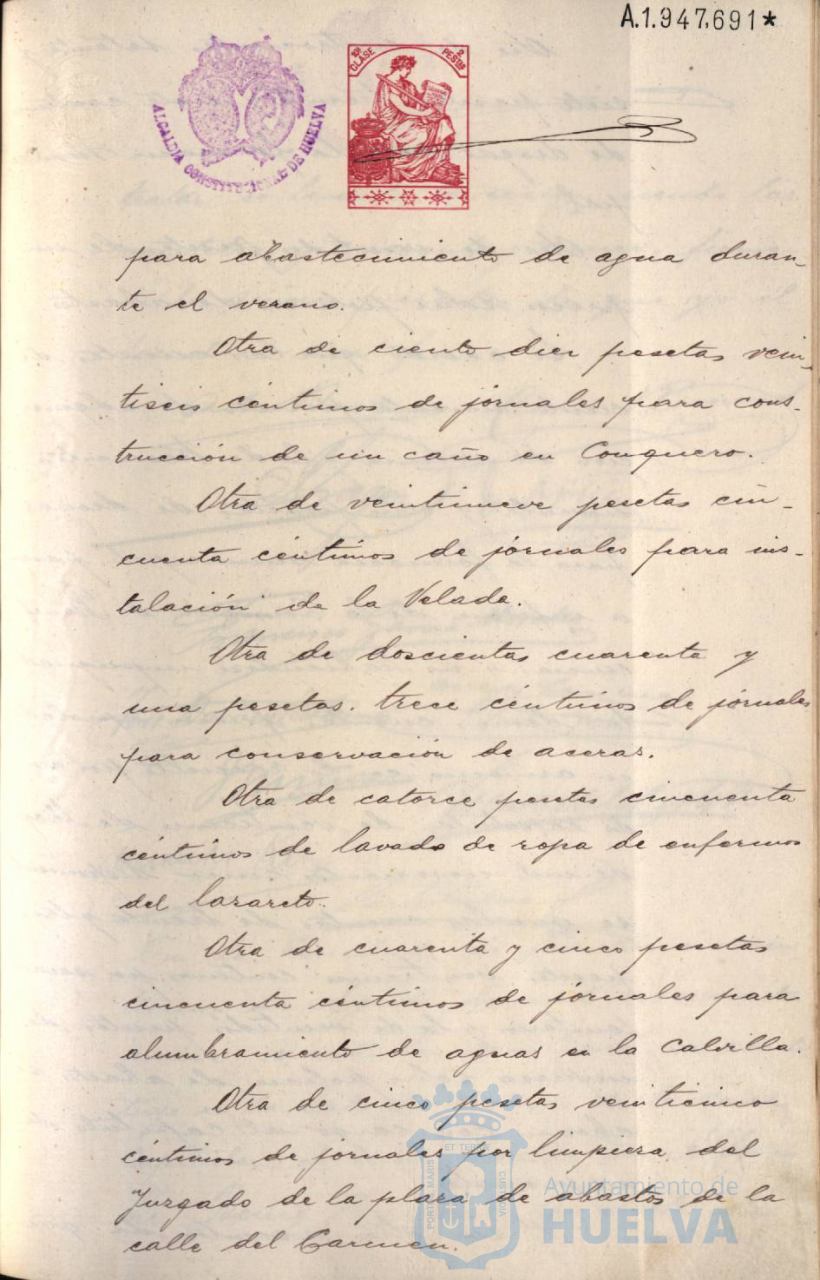 A.1.947,691*
10ª CLASE
2 PESTAS
ALCALDIA CONSTITUCIONAL DE HUELVA
para abastecimiento de agua duran-
te el verano.
Otra de ciento diez pesetas vein-
tiseis céntimos de jornales para cons-
trucción de un caño en Conquero.
Otra de veintinueve pesetas cin-
cuenta céntimos de jornales para ins-
talación de la Velada.
Otra de doscientas cuarenta y
una pesetas. trece céntimos de jornales
para conservación de aceras.
Otra de catorce pesetas cincuenta
céntimos de lavado de ropa de enfermos
del lazareto.
Otra de cuarenta y cinco pesetas
cincuenta céntimos de jornales para
alumbramiento de aguas en la Calvilla.
Otra de cinco pesetas veinticinco
céntimos de jornales por limpieza del
Juzgado de la plaza de abastos de la
calle del Carmen.
Ayuntamiento de
HUELVA